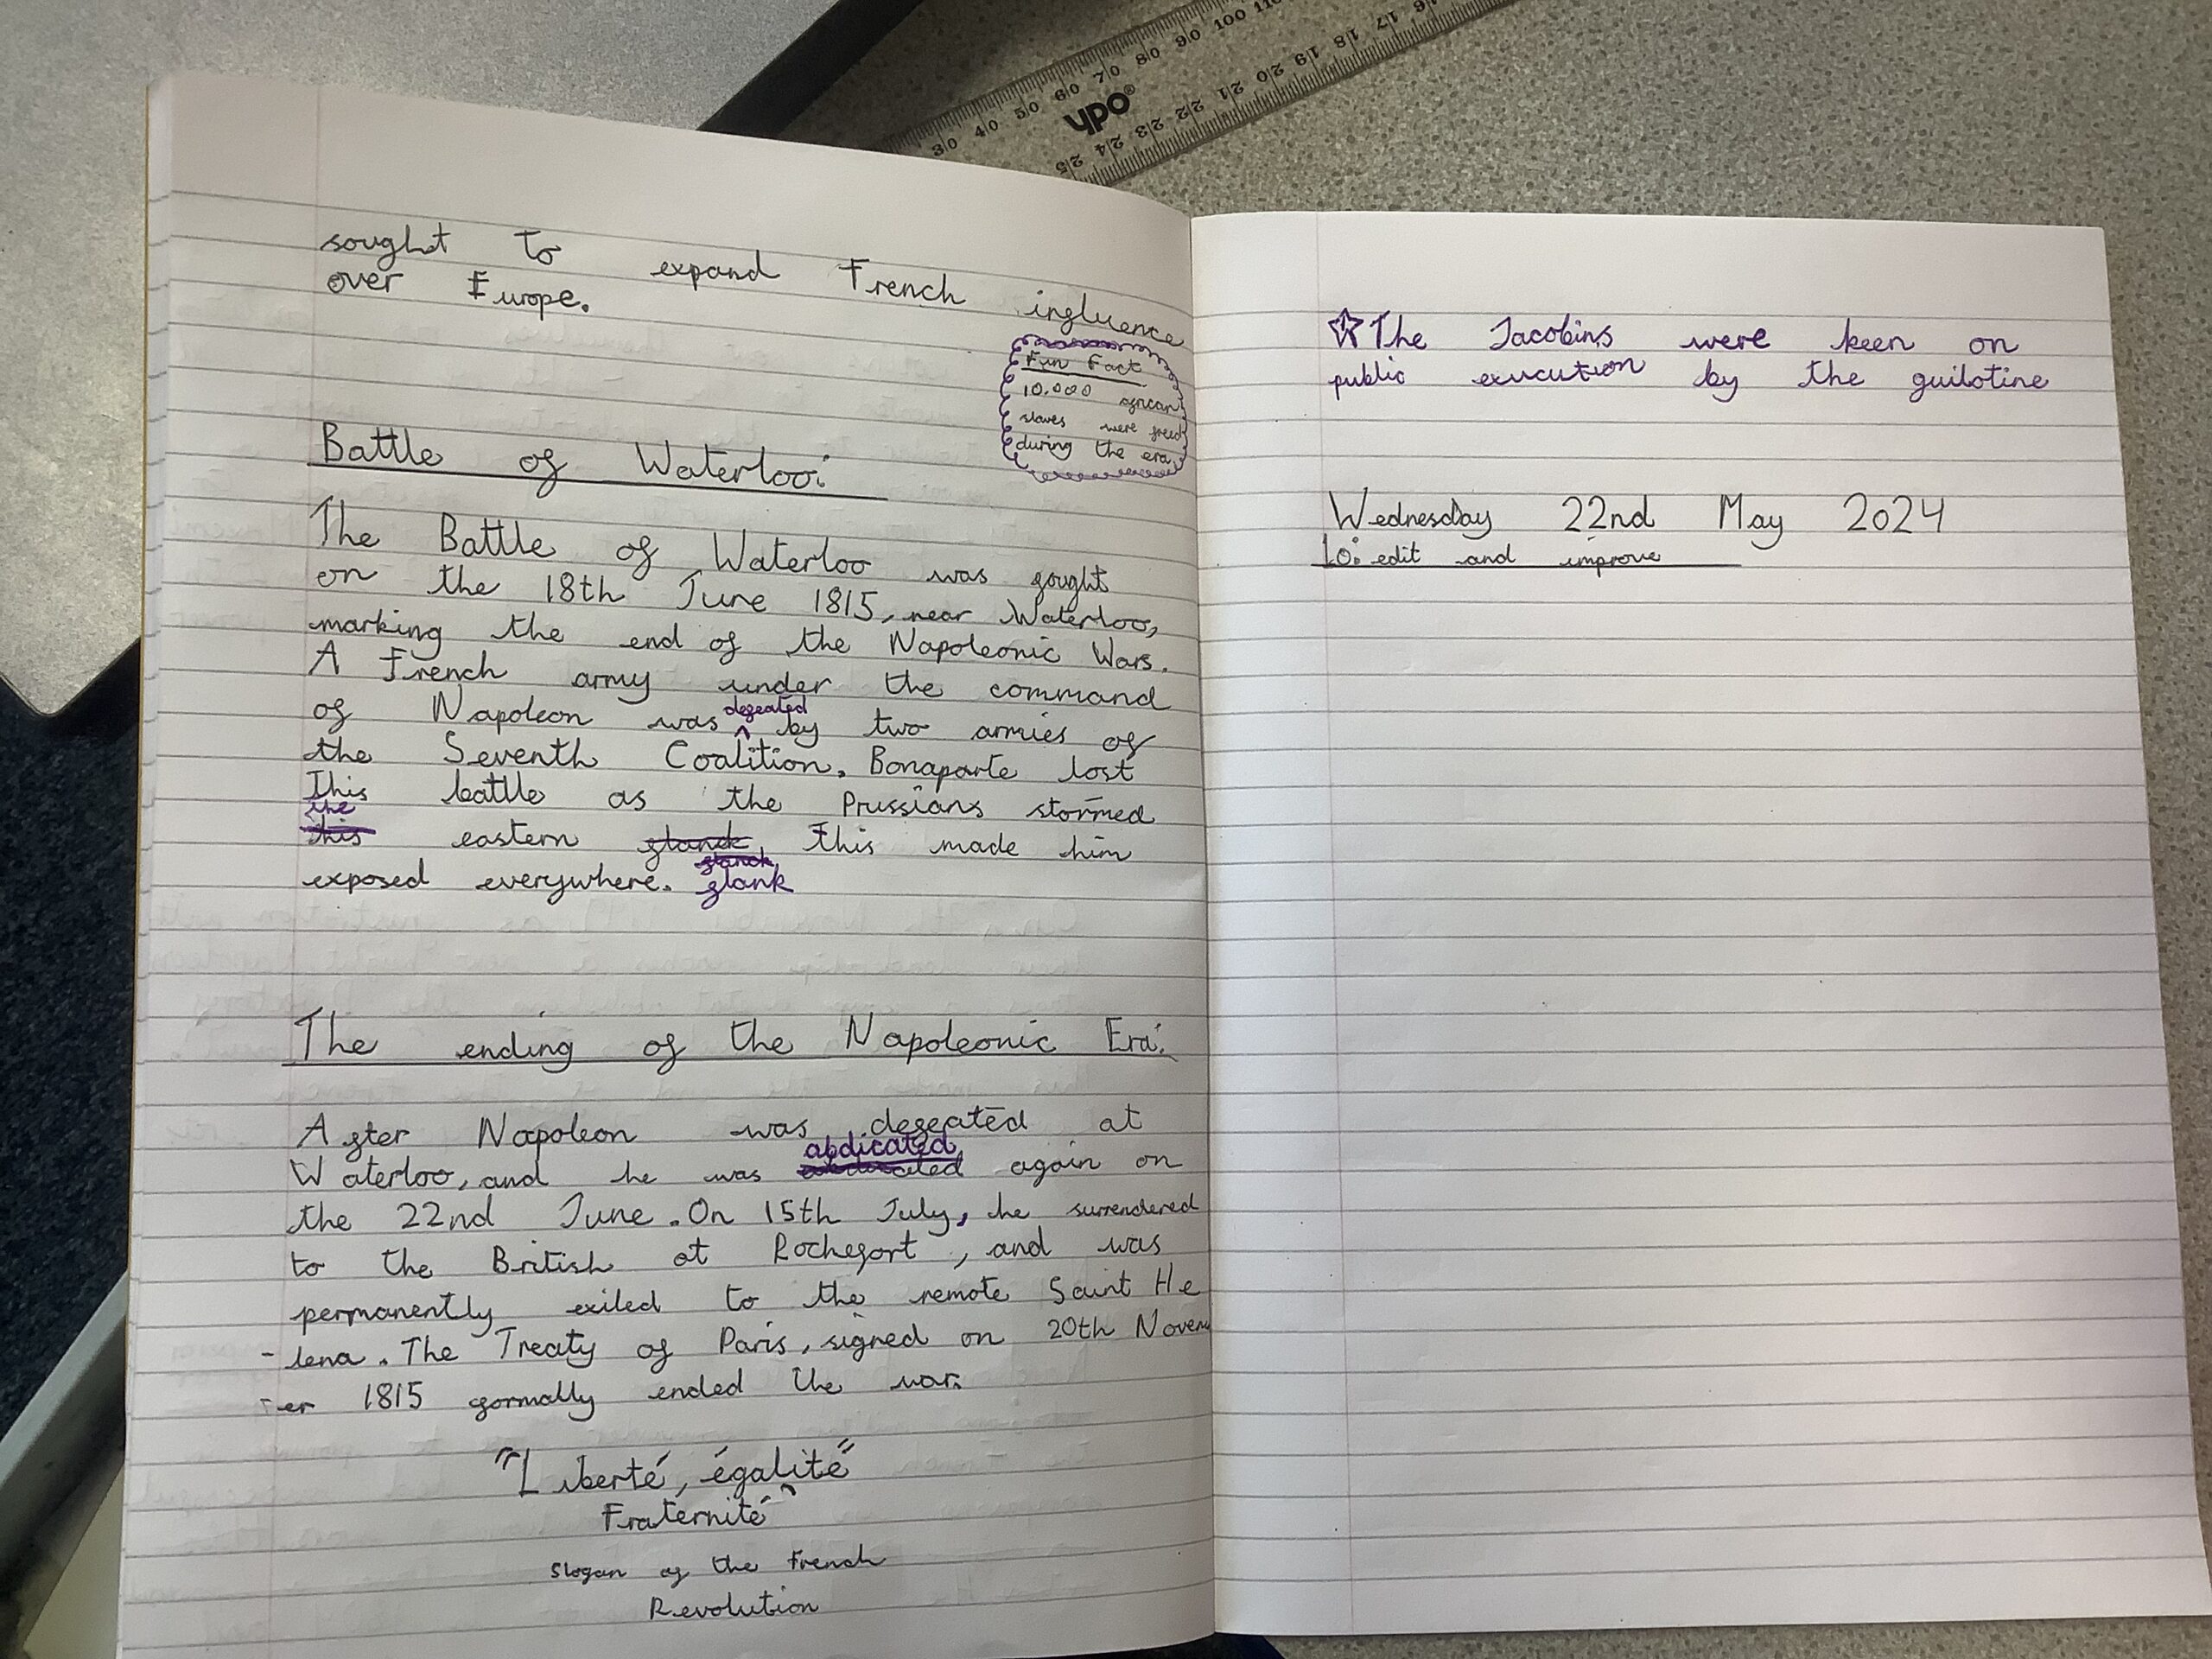 30 40 50 60 70 80 90 100 110
ypo®
25 24 23 22 21 20 19 18 17 16
sought to expand French influence
over Europe.
Fun Fact
10.000 african
slaves were freed
during the era
Battle of Waterloo:
The Battle of Waterloo was fought
on the 18th June 1815, near Waterloo,
marking the end of the Napoleonic Wars.
A French army under the command
defeated
of Napoleon was ^ by two armies of
the Seventh Coalition. Bonaparte lost
This battle as the Prussians stormed
the
this eastern flanck, this made him
flanck
exposed everywhere. flank
The ending of the Napoleonic Era:
After Napoleon was defeated at
abdicated
Waterloo, and he was again on
the 22nd June. On 15th July, he surrendered
to the British at Rochefort, and was
permanently exiled to the remote Saint He
-lena. The Treaty of Paris, signed on 20th Novem
-er 1815 formally ended the war.
"Liberté, égalité"
Fraternité"
Slogan of the French
Revolution
☆The Jacobins were keen on
public exucution by the guilotine
Wednesday 22nd May 2024
Lo: edit and improve